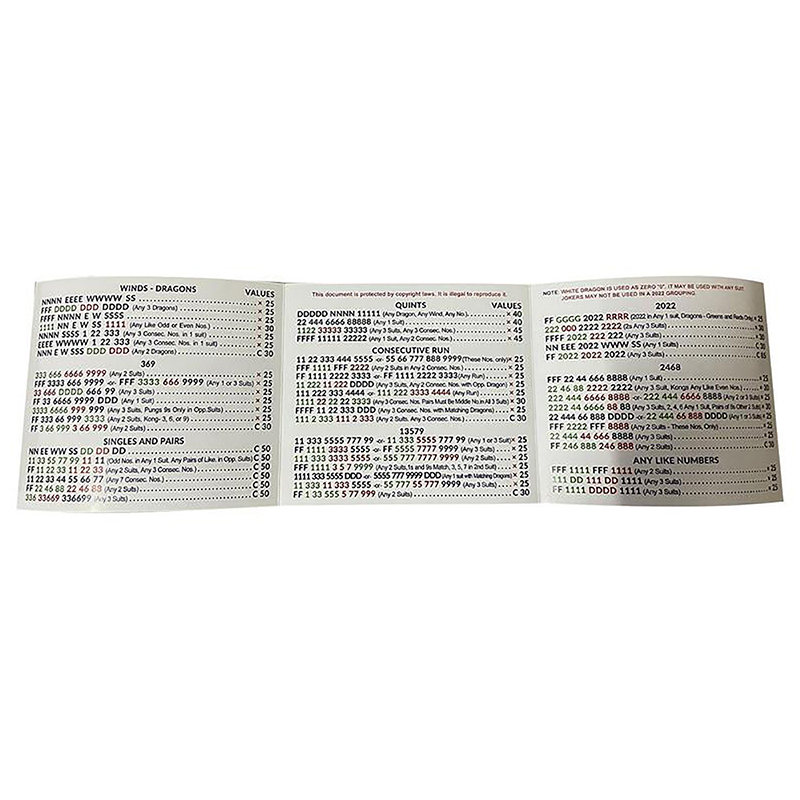 WINDS - DRAGONS VALUES
NNNN EEEE WWWW SS x 25
FFF DDDD DDD DDDD (Any 3 Dragons) x 25
FFFF NNNN E W SSSS x 25
1111 NN E W SS 1111 (Any Like Odd or Even Nos.) x 30
NNNN SSSS 1 22 333 (Any 3 Consec. Nos. in 1 suit) x 25
EEEE WWWW 1 22 333 (Any 3 Consec. Nos. in 1 suit) x 25
NNN E W SSS DDD DDD (Any 2 Dragons) C 30
369
333 666 6666 9999 (Any 2 Suits) x 25
FFF 3333 666 9999 -or- FFF 3333 666 9999 (Any 1 or 3 Suits) x 25
33 666 DDDD 666 99 (Any 3 Suits) x 25
FF 33 6666 9999 DDD (Any 1 Suit) x 25
3333 6666 999 999 (Any 3 Suits, Pungs 9s Only in Opp.Suits) x 25
FF 333 66 999 3333 (Any 2 Suits, Kong- 3, 6, or 9) x 25
FF 3 66 999 3 66 999 (Any 2 Suits) C 30
SINGLES AND PAIRS
NN EE WW SS DD DD DD C 50
11 33 55 77 99 11 11 (Odd Nos. in Any 1 Suit, Any Pairs of Like, in Opp. Suits) C 50
FF 11 22 33 11 22 33 (Any 2 Suits, Any 3 Consec. Nos.) C 50
11 22 33 44 55 66 77 (Any 7 Consec. Nos.) C 50
FF 22 46 88 22 46 88 (Any 2 Suits) C 50
336 33669 336699 (Any 3 Suits) C 50
This document is protected by copyright laws. It is illegal to reproduce it.
QUINTS VALUES
DDDDD NNNN 11111 (Any Dragon, Any Wind, Any No.) x 40
22 444 6666 88888 (Any 1 Suit) x 40
1122 33333 33333 (Any 3 Suits, Any 3 Consec. Nos.) x 45
FFFF 11111 22222 (Any 1 Suit, Any 2 Consec. Nos.) x 45
CONSECUTIVE RUN
11 22 333 444 5555 -or- 55 66 777 888 9999 (These Nos. only) x 25
FFF 1111 FFF 2222 (Any 2 Suits in Any 2 Consec. Nos.) x 25
FF 1111 2222 3333 -or- FF 1111 2222 3333 (Any Run) x 25
11 222 11 222 DDDD (Any 3 Suits, Any 2 Consec. Nos. with Opp. Dragon) x 25
111 222 333 4444 -or- 111 222 3333 4444 (Any Run) x 25
1111 22 22 22 3333 (Any 3 Consec. Nos. Pairs Must Be Middle No. in All 3 Suits) x 30
FFFF 11 22 333 DDD (Any 3 Consec. Nos. with Matching Dragons) x 25
111 2 333 111 2 333 (Any 2 Suits, Any 3 Consec. Nos.) C 30
13579
11 333 5555 777 99 -or- 11 333 5555 777 99 (Any 1 or 3 Suit) x 25
FF 1111 3333 5555 -or- FF 5555 7777 9999 (Any 3 Suits) x 25
111 333 3333 5555 -or- 555 777 7777 9999 (Any 2 Suits) x 25
FFFF 1111 3 5 7 9999 (Any 2 Suits,1s and 9s Match, 3, 5, 7 in 2nd Suit) x 25
1111 333 5555 DDD -or- 5555 777 9999 DDD (Any 1 suit with Matching Dragons) x 25
11 333 11 333 5555 -or- 55 777 55 777 9999 (Any 3 Suits) x 25
FF 1 33 555 5 77 999 (Any 2 Suits) C 30
NOTE: WHITE DRAGON IS USED AS ZERO "0". IT MAY BE USED WITH ANY SUIT
JOKERS MAY NOT BE USED IN A 2022 GROUPING.
2022
FF GGGG 2022 RRRR (2022 in Any 1 suit, Dragons - Greens and Reds Only) x 25
222 000 2222 2222 (2s Any 3 Suits) x 30
FFFF 2022 222 222 (Any 3 Suits) x 30
NN EEE 2022 WWW SS (Any 1 Suits) C 30
FF 2022 2022 2022 (Any 3 Suits) C 85
2468
FFF 22 44 666 8888 (Any 1 Suit) x 25
22 46 88 2222 2222 (Any 3 Suit, Kongs Any Like Even No.) x 25
222 444 6666 8888 -or- 222 444 6666 8888 (Any 2 or 3 Suits) x 25
2222 44 6666 88 88 (Any 3 Suits, 2, 4, 6 Any 1 Suit, Pairs of 8s Other 2 Suits) x 30
22 444 66 888 DDDD -or- 22 444 66 888 DDDD (Any 1 or 3 Suits) x 25
FFF 2222 FFF 8888 (Any 2 Suits – These Nos, Only) x 25
22 444 44 666 8888 (Any 3 Suits) x 25
FF 246 888 246 888 (Any 2 Suits) C 30
ANY LIKE NUMBERS
FFF 1111 FFF 1111 (Any 2 Suits) x 25
111 DD 111 DD 1111 (Any 3 Suits) x 25
FF 1111 DDDD 1111 (Any 3 Suits) x 25